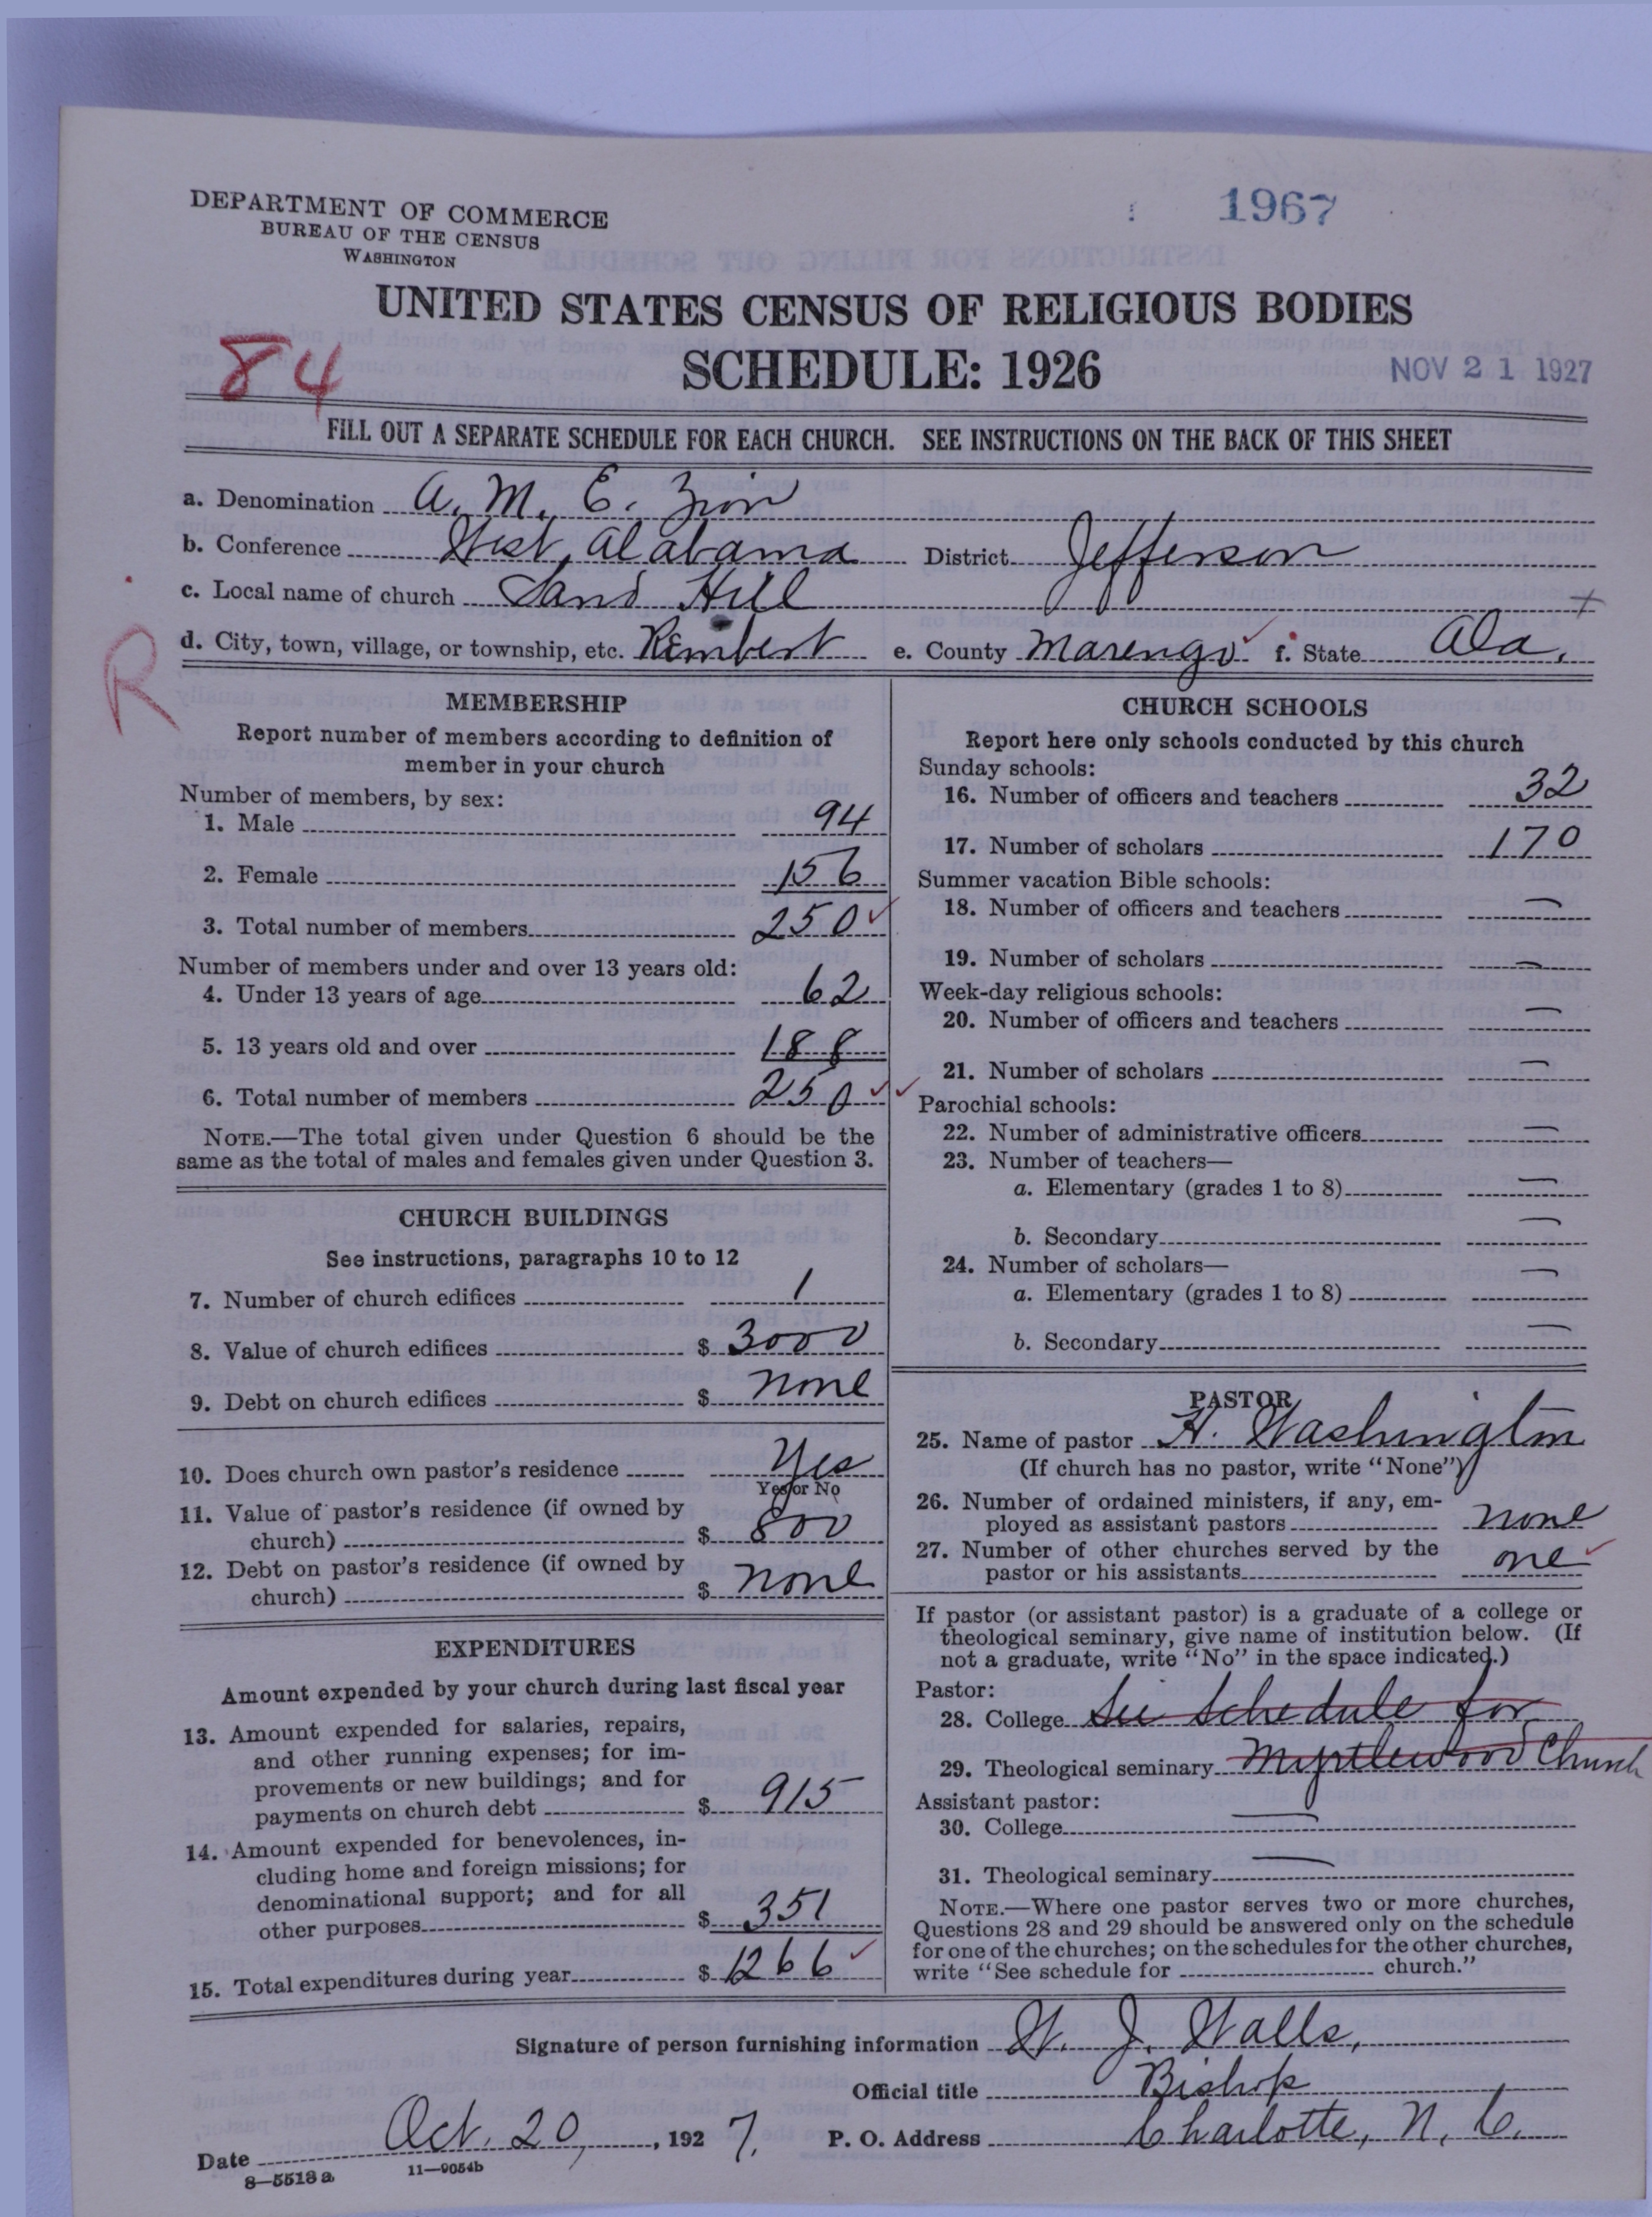 DEPARTMENT OF COMMERCE
BUREAU OF THE CENSUS
WASHINGTON
1967
UNITED STATES CENSUS OF RELIGIOUS BODIES
84
SCHEDULE: 1926
NOV 21 1927
FILL OUT A SEPARATE SCHEDULE FOR EACH CHURCH. SEE INSTRUCTIONS ON THE BACK OF THIS SHEET
a. Denomination A. M. E. Zion
b. Conference West Alabama District Jefferson
c. Local name of church Sand Hill
d. City, town, village, or township, etc. Rembert e. County Marengo f. State Ala.
R
MEMBERSHIP
Report number of members according to definition of
member in your church
Number of members, by sex:
1. Male 94
2. Female 156
3. Total number of members 250
Number of members under and over 13 years old:
4. Under 13 years of age 62
5. 13 years old and over 188
6. Total number of members 250
NOTE.—The total given under Question 6 should be the
same as the total of males and females given under Question 3.
CHURCH BUILDINGS
See instructions, paragraphs 10 to 12
7. Number of church edifices 1
8. Value of church edifices $ 3000
9. Debt on church edifices $ none
10. Does church own pastor's residence Yes
Yes or No
11. Value of pastor's residence (if owned by
church) $ 800
12. Debt on pastor's residence (if owned by
church) $ none
EXPENDITURES
Amount expended by your church during last fiscal year
13. Amount expended for salaries, repairs,
and other running expenses; for im-
provements or new buildings; and for
payments on church debt $ 915
14. Amount expended for benevolences, in-
cluding home and foreign missions; for
denominational support; and for all
other purposes $ 351
15. Total expenditures during year $ 1266
CHURCH SCHOOLS
Report here only schools conducted by this church
Sunday schools:
16. Number of officers and teachers 32
17. Number of scholars 170
Summer vacation Bible schools:
18. Number of officers and teachers —
19. Number of scholars —
Week-day religious schools:
20. Number of officers and teachers —
21. Number of scholars —
Parochial schools:
22. Number of administrative officers —
23. Number of teachers—
a. Elementary (grades 1 to 8) —
b. Secondary —
24. Number of scholars—
a. Elementary (grades 1 to 8) —
b. Secondary —
PASTOR
25. Name of pastor H. Washington
(If church has no pastor, write "None")
26. Number of ordained ministers, if any, em-
ployed as assistant pastors none
27. Number of other churches served by the
pastor or his assistants one
If pastor (or assistant pastor) is a graduate of a college or
theological seminary, give name of institution below. (If
not a graduate, write "No" in the space indicated.)
Pastor:
28. College See Schedule for
29. Theological seminary Myrtlewood Church
Assistant pastor:
30. College —
31. Theological seminary —
NOTE.—Where one pastor serves two or more churches,
Questions 28 and 29 should be answered only on the schedule
for one of the churches; on the schedules for the other churches,
write "See schedule for church."
Signature of person furnishing information W. J. Walls,
Official title Bishop
Date Oct. 20, 1927. P. O. Address Charlotte, N. C.
8—5518 a 11—9054b